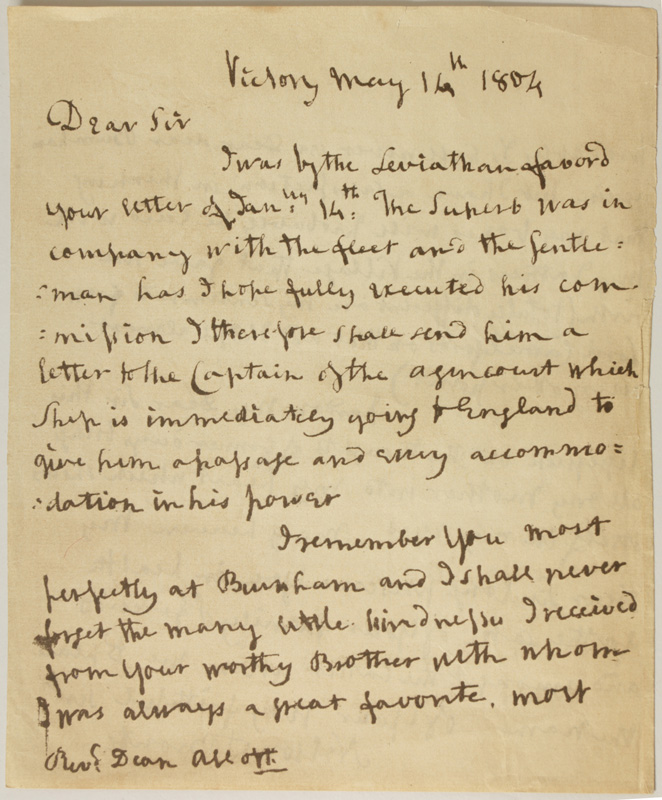 Victory May 14th 1804
Dear Sir
I was by the Leviathan favord
your letter of Janry: 14th: The Superb was in
company with the fleet and the Gentle=
=man has I hope fully executed his com
=mission I therefore shall send him a
letter to the Captain of the Agincourt which
Ship is immediately going to England to
give him a passage and every accommo=
=dation in his power
I remember You most
perfectly at Burnham and I shall never
forget the many little kindnesses I received
from Your worthy Brother with whom
I was always a great favorite. most
Revd. Dean Allott.